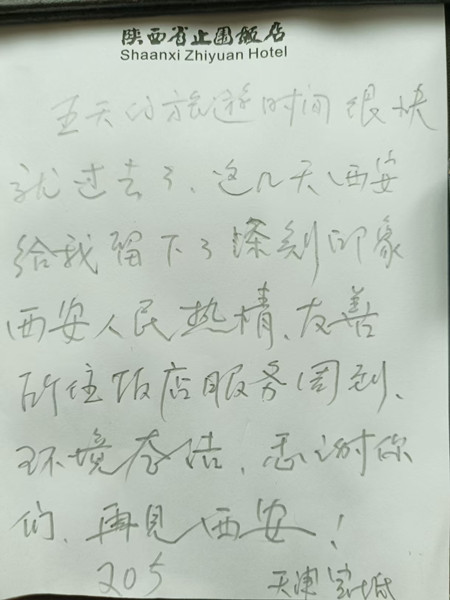 陕西省止园饭店
Shaanxi Zhiyuan Hotel
五天的旅遊时间很快
就过去了、这几天西安
给我留下了深刻印象
西安人民热情、友善
所住饭店服务周到、
环境整洁，感谢你
们，再见西安！
205 天津